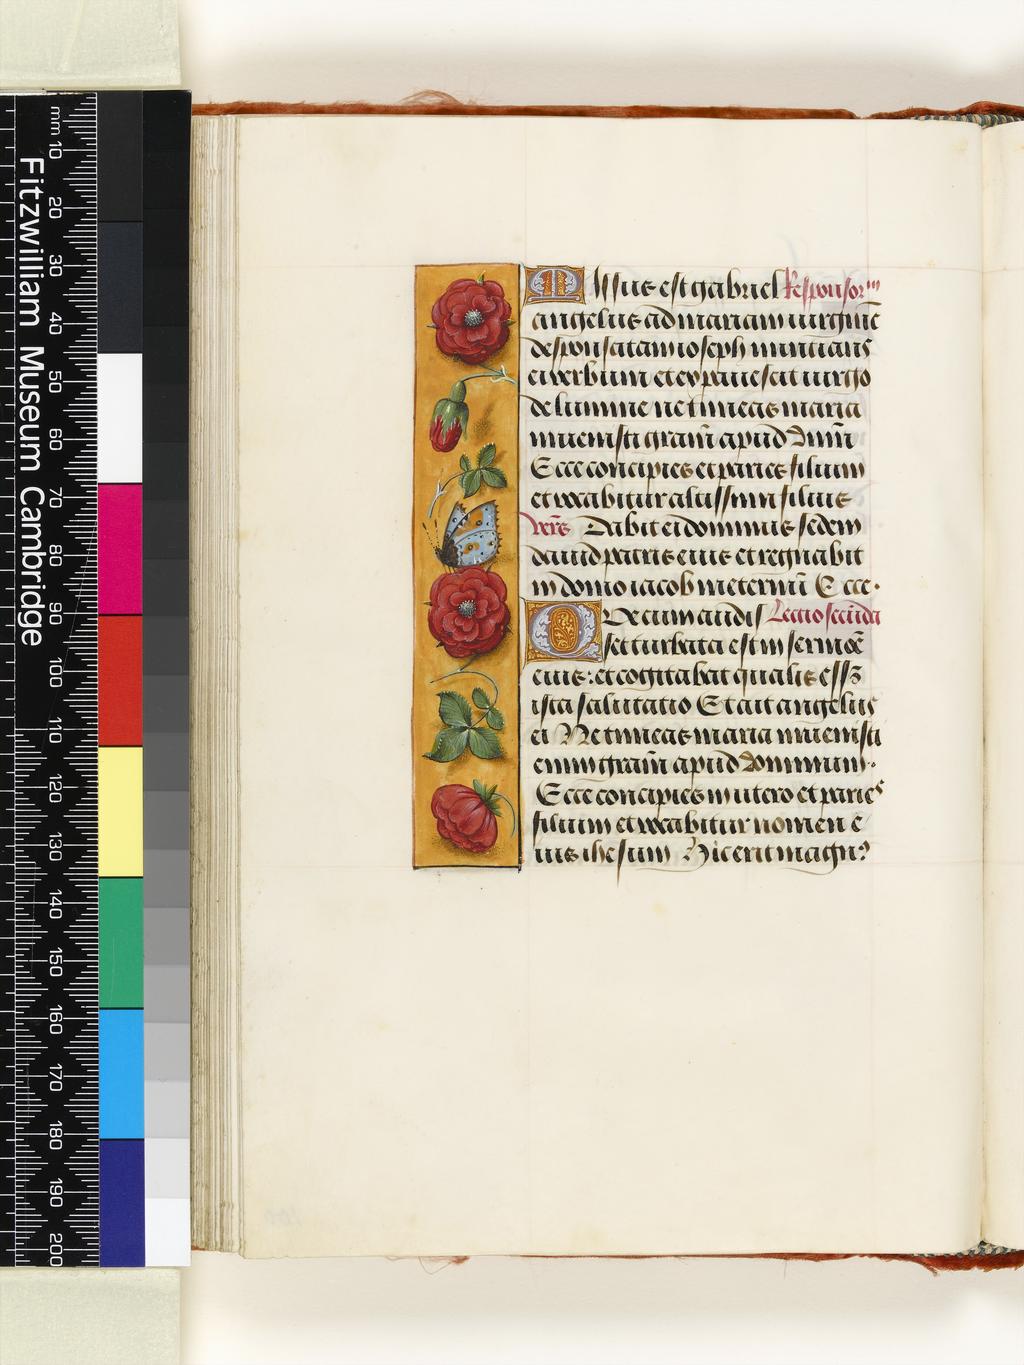 Fitzwilliam Museum Cambridge
mm 10 20 30 40 50 60 70 80 90 100 110 120 130 140 150 160 170 180 190 200
Missus est gabriel Responsoriū
angelus ad mariam uirginē
desponsatam ioseph nuncians
ei verbum et expauescit uirgo
de lumine ne timeas maria
inuenisti gratiā apud dnm̄
Ecce concipies et paries filium
et vocabitur altissimi filius
vers̄ Dabit ei dominus sedem
dauid patris eius et regnabit
in domo iacob in eternū Ecce.
Que cum audisset Lectio secūda
turbata est in sermōe
eius: et cogitabat qualis essꝫ
ista salutatio Et ait angelus
ei Ne timeas maria inuenisti
enim gratiā apud dominum.
Ecce concipies in utero et paries
filium et vocabitur nomen e
ius ihesum Hic erit magnꝰ